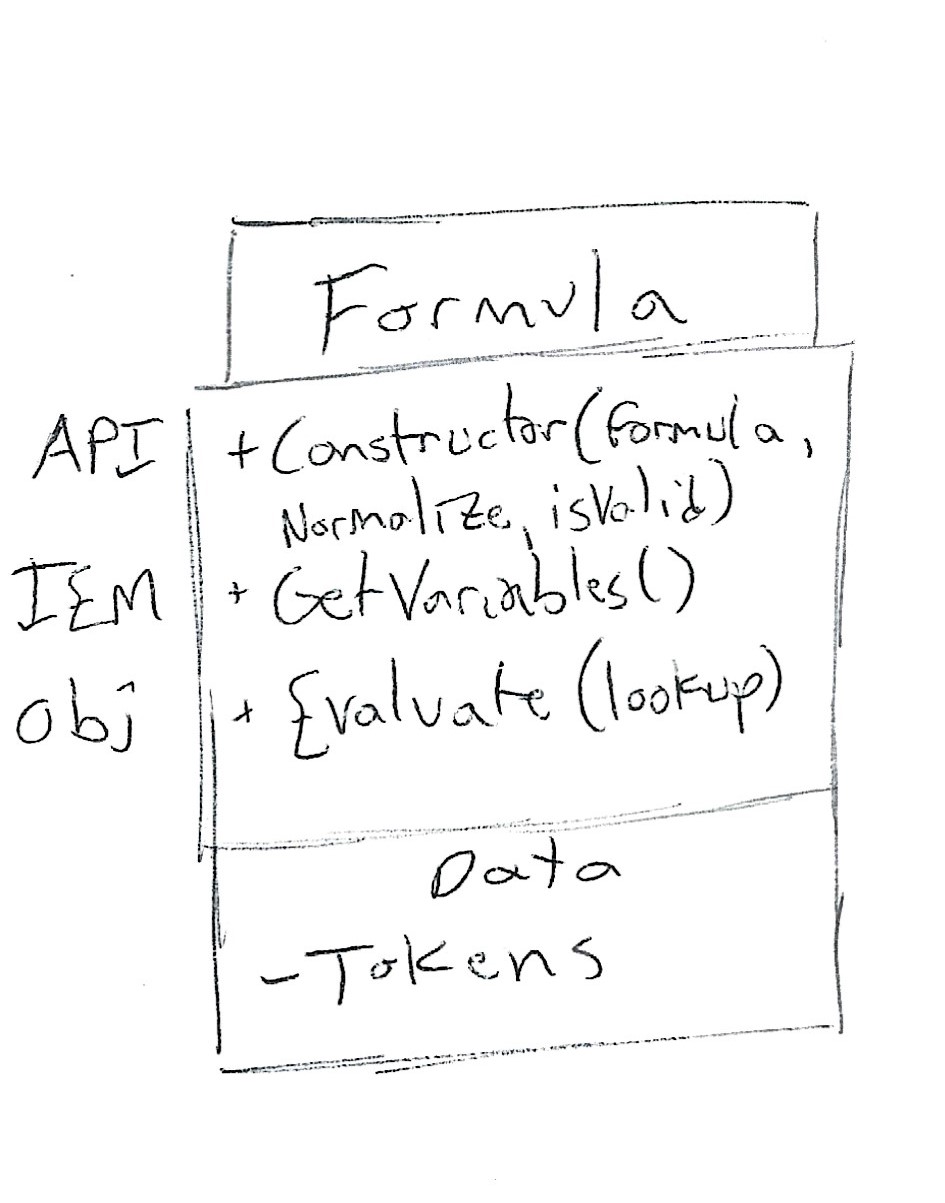 Formula
API +Constructor(Formula,
Normalize, isValid)
IEM + GetVariables()
Obj + Evaluate (lookup)
Data
-Tokens